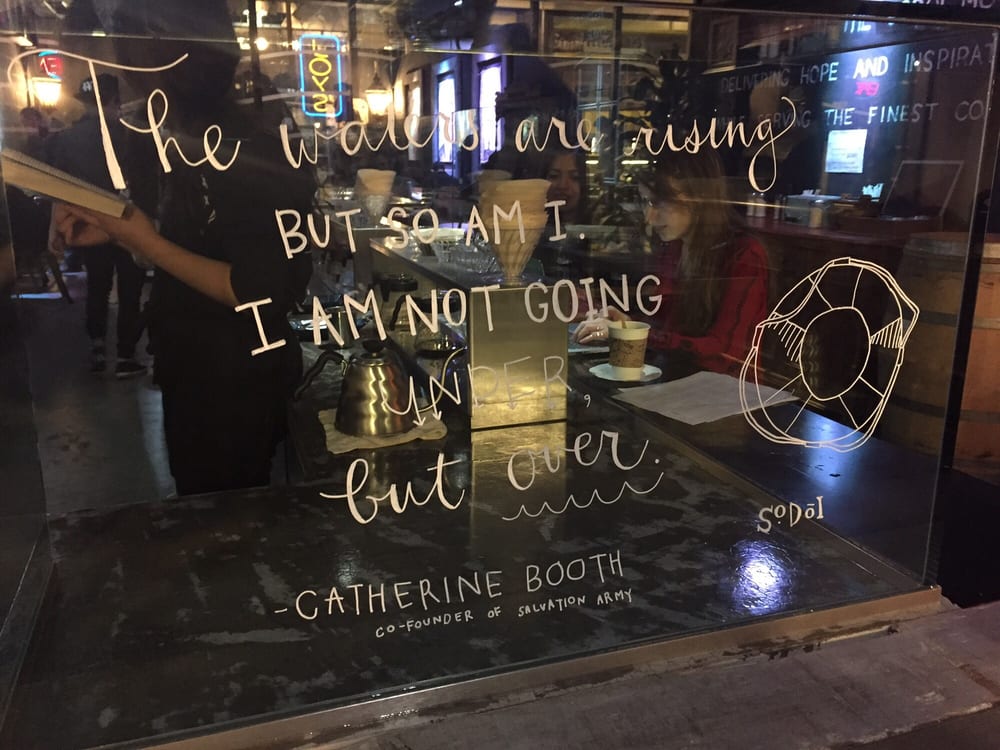 The waters are rising
BUT SO AM I.
I AM NOT GOING
UNDER,
but over.
-CATHERINE BOOTH
CO-FOUNDER OF SALVATION ARMY
SODŌI
THE
DELIVERING HOPE AND INSPIRA
SERVING THE FINEST CO